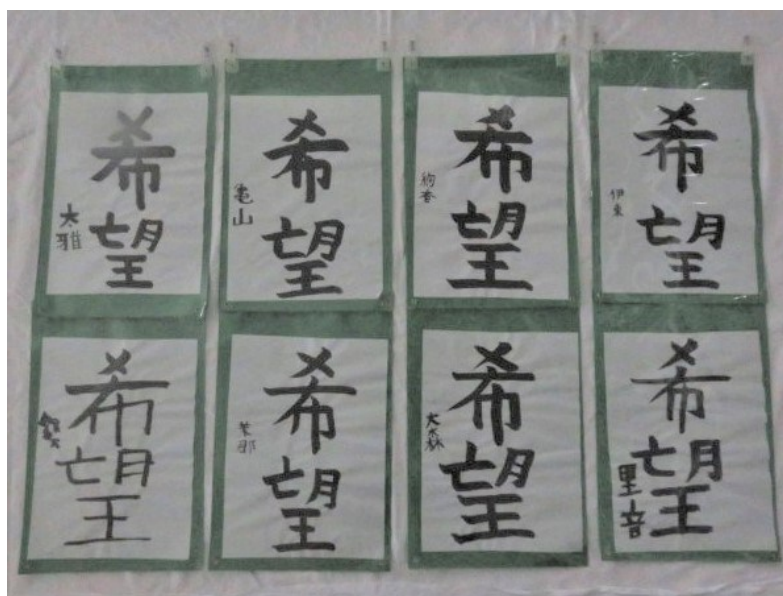 希望
太雅
希望
亀山
希望
絢香
希望
伊東
希望
希望
希望
大森
希望
里音